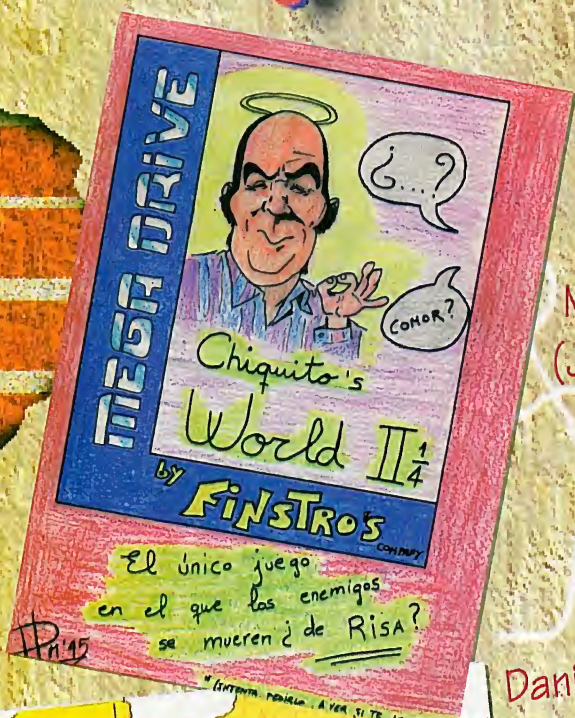 MEGA DRIVE
¿...?
COMOR?
Chiquito's
World II 1/4
by FINSTRO'S
COMPANY
El único juego
en el que los enemigos
se mueren ¿ de RISA?
'95
INTENTA PEDIRLO, A VER SI TE
Dani